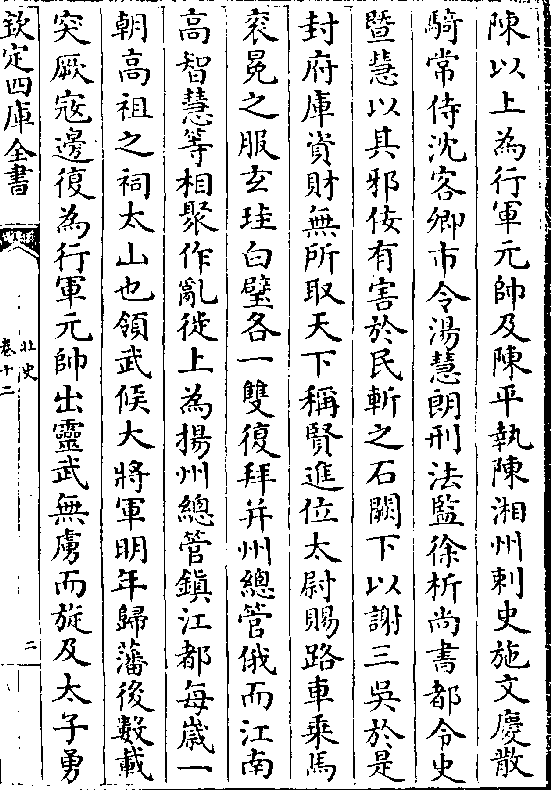 陳以上為行軍元帥及陳平執陳湘州刺史施文慶散
騎常侍沈客卿市令湯慧朗刑法監徐析尚書都令史
暨慧以其邪佞有害於民斬之石闕下以謝三吳於是
封府庫資財無所取天下稱賢進位太尉賜路車乘馬
袞冕之服玄珪白璧各一雙復拜并州總管俄而江南
高智慧等相聚作亂徙上為揚州總管鎮江都每歲一
朝高祖之祠太山也領武候大將軍明年歸藩後數載
突厥寇邊復為行軍元帥出靈武無虜而旋及太子勇
欽定四庫全書
北史
卷十二
二